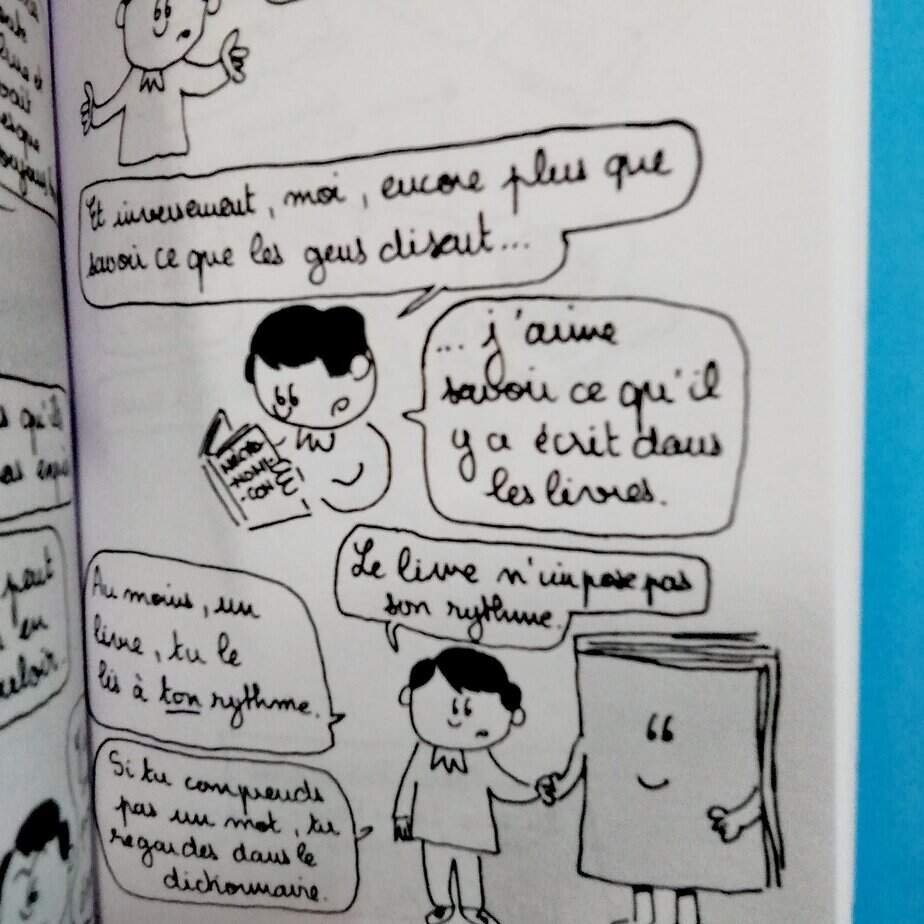 Et inversement, moi, encore plus que
savoir ce que les gens disent...
... j'aime
savoir ce qu'il
y a écrit dans
les livres.
Le livre n'impose pas
son rythme.
Au moins, un
livre, tu le
lis à ton rythme.
Si tu comprends
pas un mot, tu
regardes dans le
dictionnaire.
qu'il
peut
en